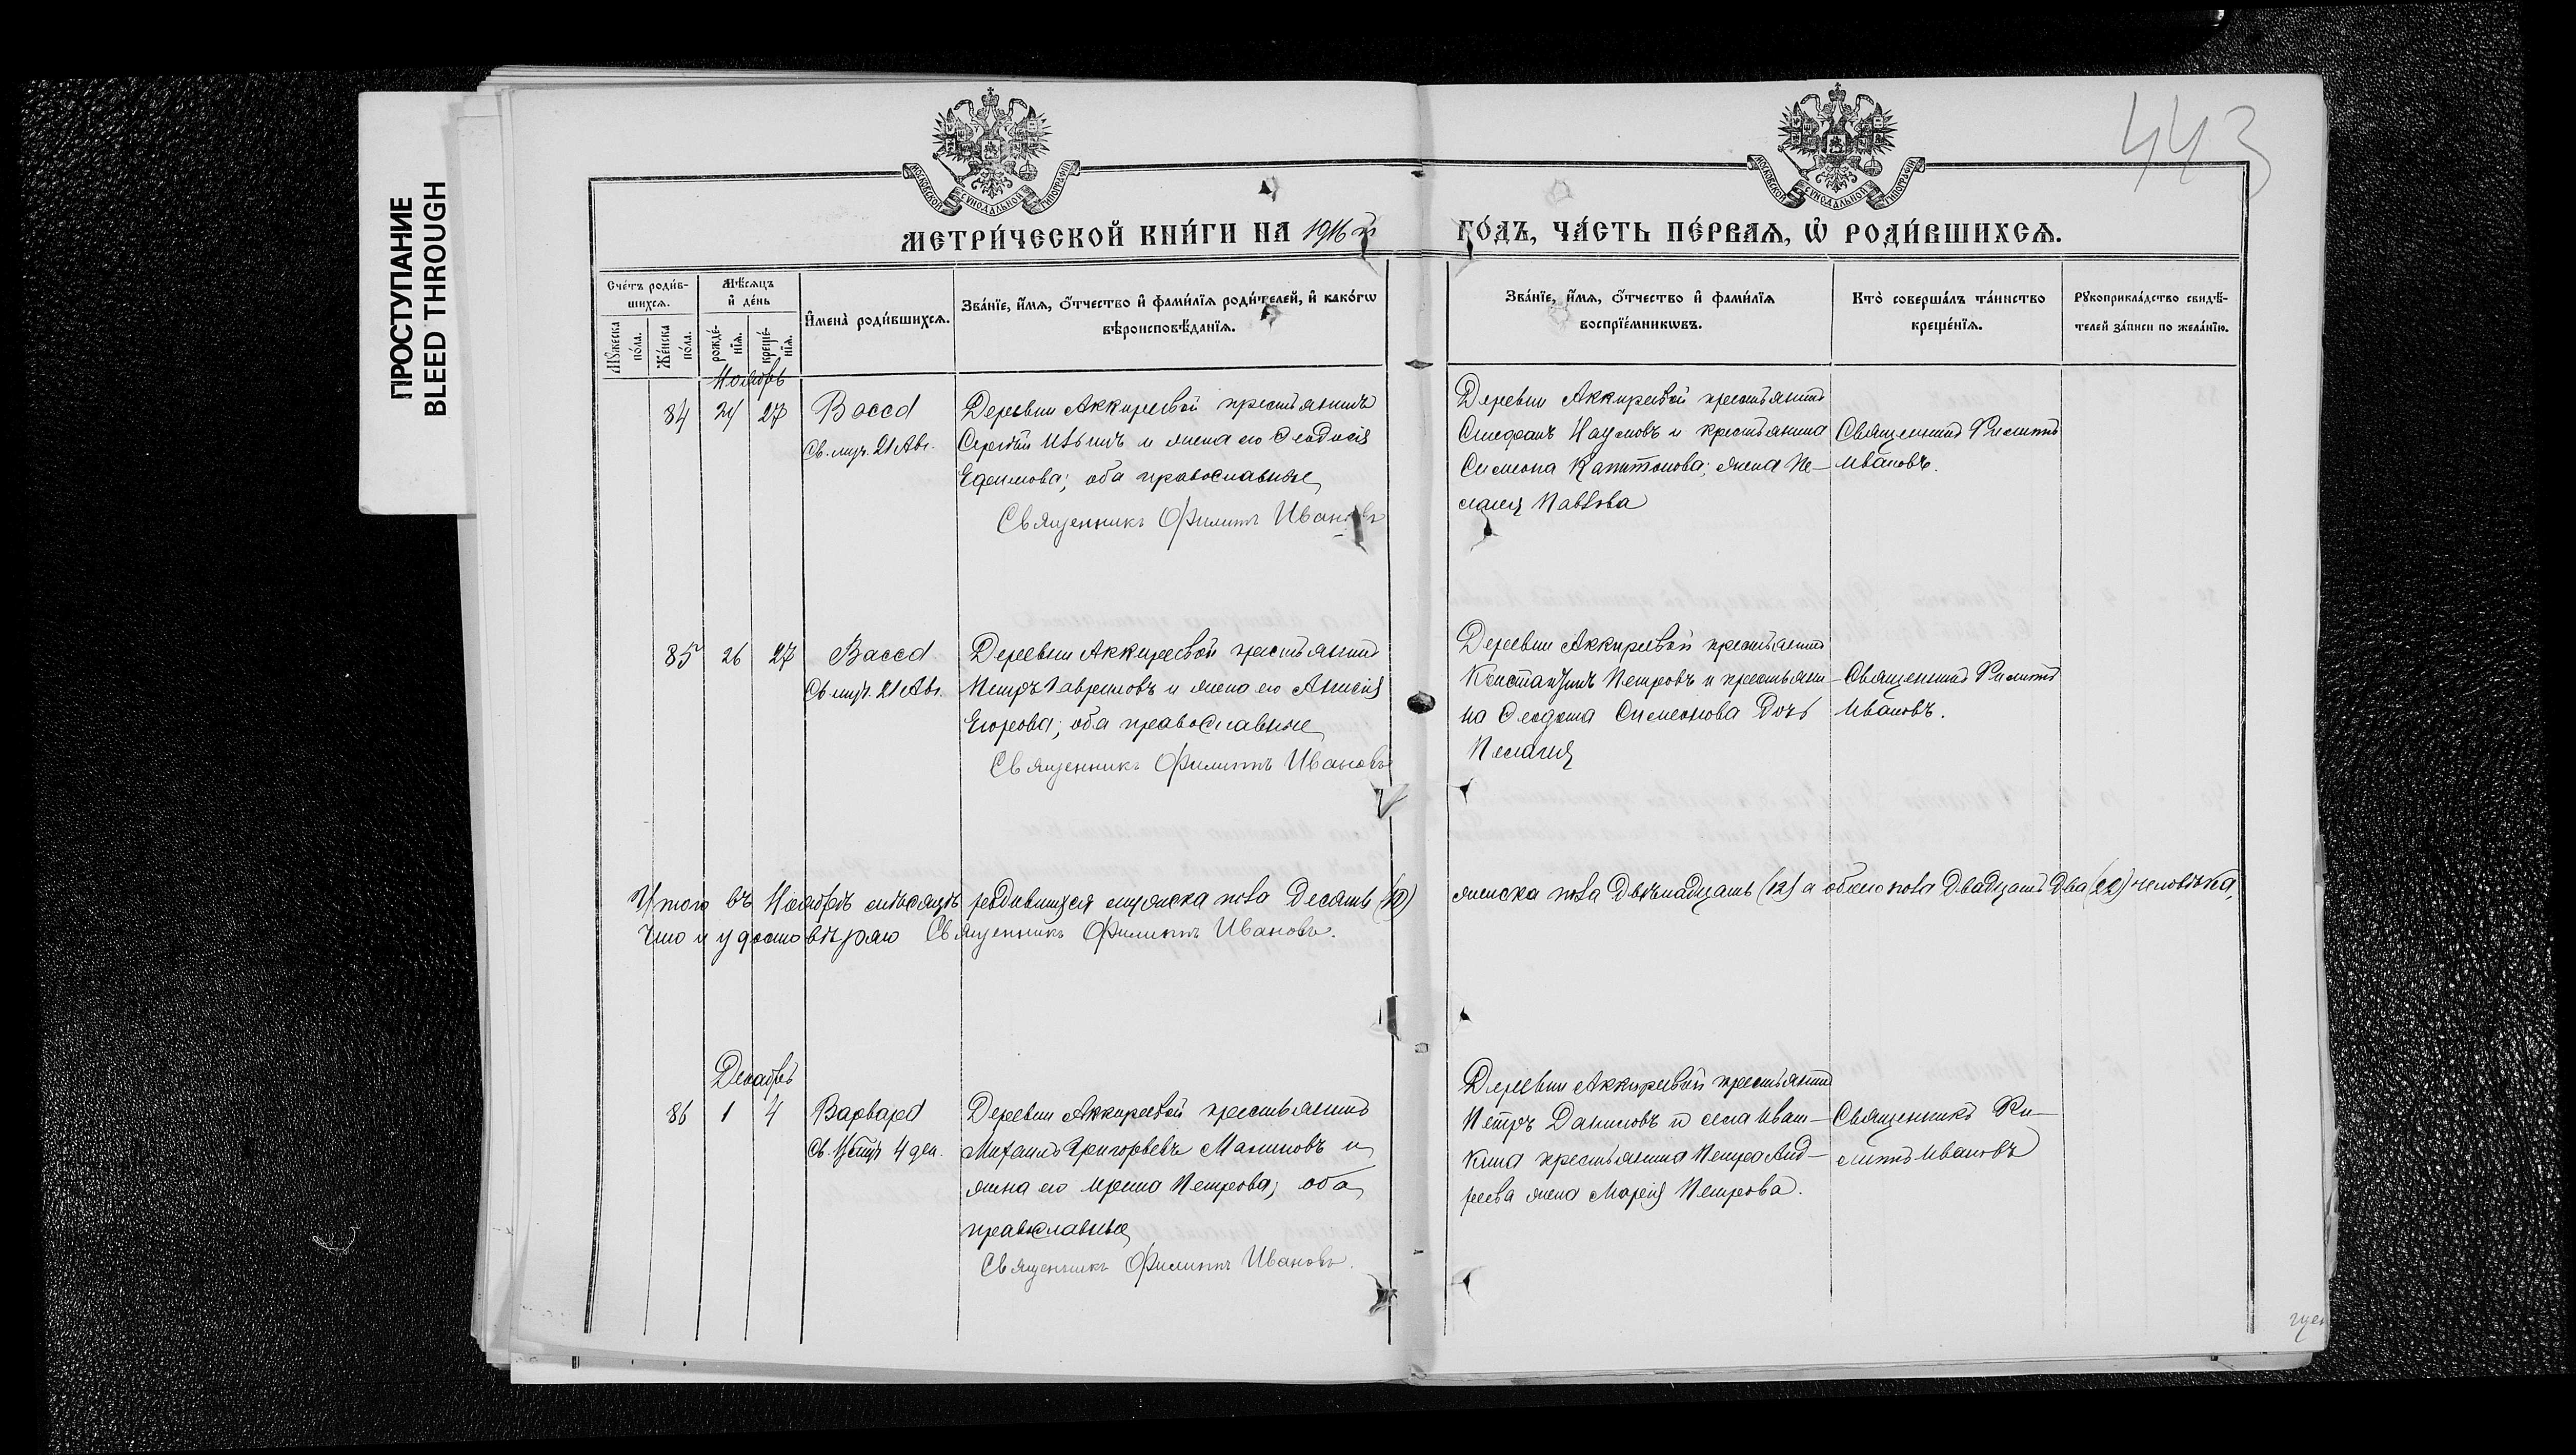 ПРОСТУПАНИЕ
BLEED THROUGH
443
МОСКОВСКОЙ СѴНОДАЛЬНОЙ ТИПОГРАФІИ
МОСКОВСКОЙ СѴНОДАЛЬНОЙ ТИПОГРАФІИ
МЕТРИ́ЧЕСКОЙ КНИ́ГИ НА 1916 й
ГО́ДЪ, ЧА́СТЬ ПЕ́РВАЯ, Ѡ҆ РОДИ́ВШИХСЯ.
Сче́тъ роди́в-
шихся.
Мꙋжеска по́ла.
Же́нска по́ла.
Мѣ́сяцъ и҆ де́нь
рожде́-
нїя.
креще́-
нїя.
И҆мена̀ роди́вшихся.
Зва́нїе, и҆́мя, ѻ҆́тчество и҆ фами́лїя роди́телей, и҆ како́гѡ
вѣроисповѣ́данїя.
Зва́нїе, и҆́мя, ѻ҆́тчество и҆ фами́лїя
воспрїе́мникѡвъ.
Кто̀ соверша́лъ та́инство
креще́нїя.
Рꙋкоприкла́дство свидѣ́-
телей за́писи по жела́нїю.
Ноябрь
84 24 27 Васса
Св. муч. 21 Авг.
Деревни Аккиреевой крестьянинъ
Сергѣй Ильичъ и жена его Ѳеодосія
Ефимова; оба православные
Священникъ Филиппъ Ивановъ
Деревни Аккиреевой крестьянинъ
Стефанъ Наумовъ и крестьянина
Симеона Капитонова; жена Пе-
лагея Павлова
Священникъ Филиппъ
Ивановъ.
85 26 27 Васса
Св. муч. 21 Авг.
Деревни Аккиреевой крестьянинъ
Петръ Гавриловъ и жена его Анисія
Егорова; оба православные
Священникъ Филиппъ Ивановъ
Деревни Аккиреевой крестьянинъ
Константинъ Петровъ и крестьяни-
на Симеонова Дочь
Пелагея
Священникъ Филиппъ
Ивановъ.
Итого въ Ноябрѣ мѣсяцѣ родившихся мужска пола Десять (10) женска пола Двѣнадцать (12) а обоего пола Двадцать Два (22) человѣка,
Что и удостовѣряю Священникъ Филиппъ Ивановъ.
Декабрь
86 1 4 Варвара
Св. 4 дек.
Деревни Аккиреевой крестьянинъ
Михаилъ Григорьевъ Малиновъ и
жена его Ирина Петрова; оба
православные
Священникъ Филиппъ Ивановъ.
Деревни Аккиреевой крестьянинъ
Петръ Даниловъ и села Иван-
кина крестьянина Петра Анд-
реева жена Марія Петрова.
Священникъ Фи-
липпъ Ивановъ